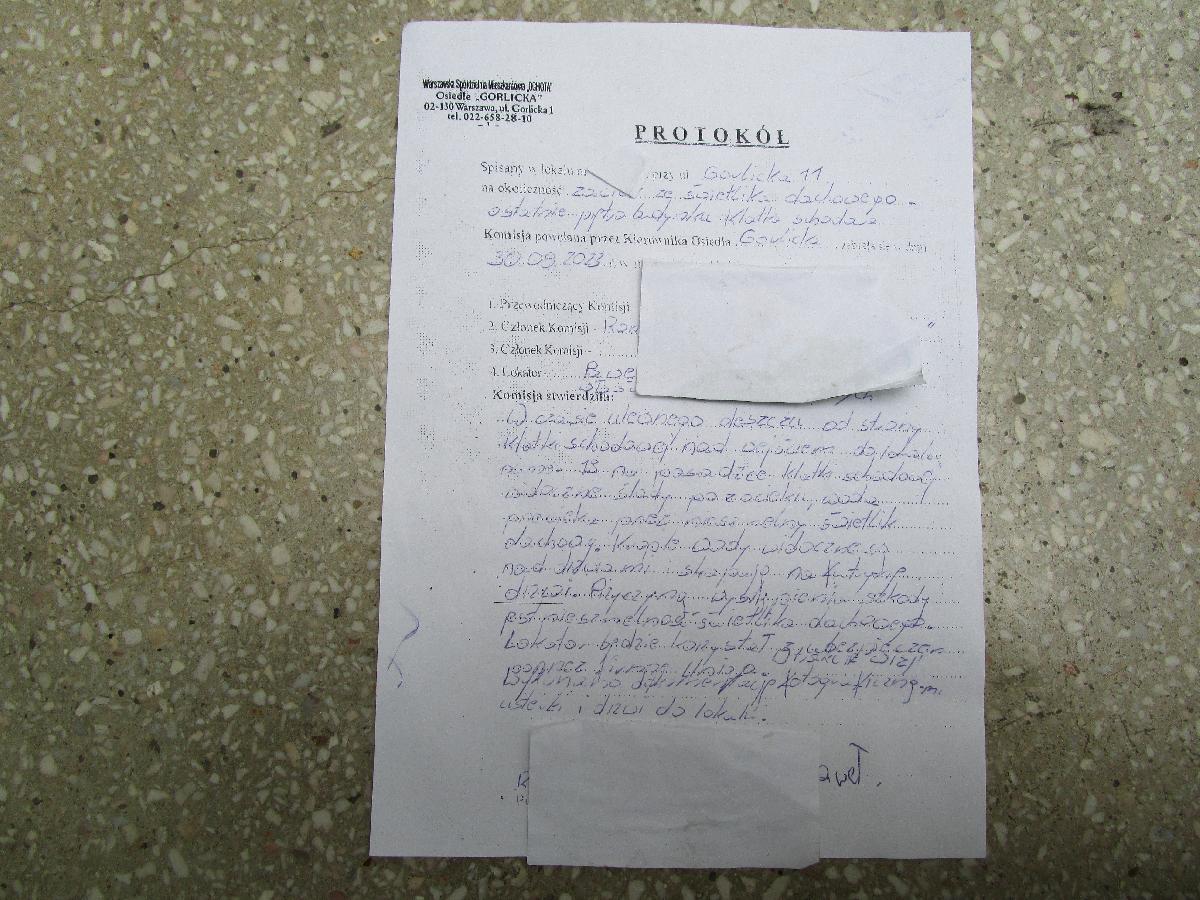 Warszawska Spółdzielnia Mieszkaniowa „OCHOTA"
Osiedle „GORLICKA"
02-130 Warszawa, ul. Gorlicka 1
tel. 022-658-28-10
- 1 -
PROTOKÓŁ
Spisany w lokalu nr przy ul Gorlicka 11
na okoliczność świetlika dachowego -
ostatnie piętro budynku klatka schodowa
Komisja powołana przez Kierownika Osiedla Gorlicka
30.09.2023 r. w
1. Przewodniczący Komisji
2. Członek Komisji -
3. Członek Komisji -
4. Lokator
Komisja stwierdziła:
W czasie ulewnego deszczu od strony
klatki schodowej nad wejściem do lokalu
13 na posadzce klatki schodowej
widoczne ślady po zacieku, woda
przecieka przez nieszczelny świetlik
dachowy. Krople wody widoczne są
nad drzwiami i skapują na
drzwi. Przyczyną wystąpienia szkody
jest nieszczelność świetlika dachowego.
Lokator będzie korzystał z ubezpieczenia
poprzez firmę Uniqa.
Wykonano dokumentację fotograficzną
usterki i drzwi do lokalu.